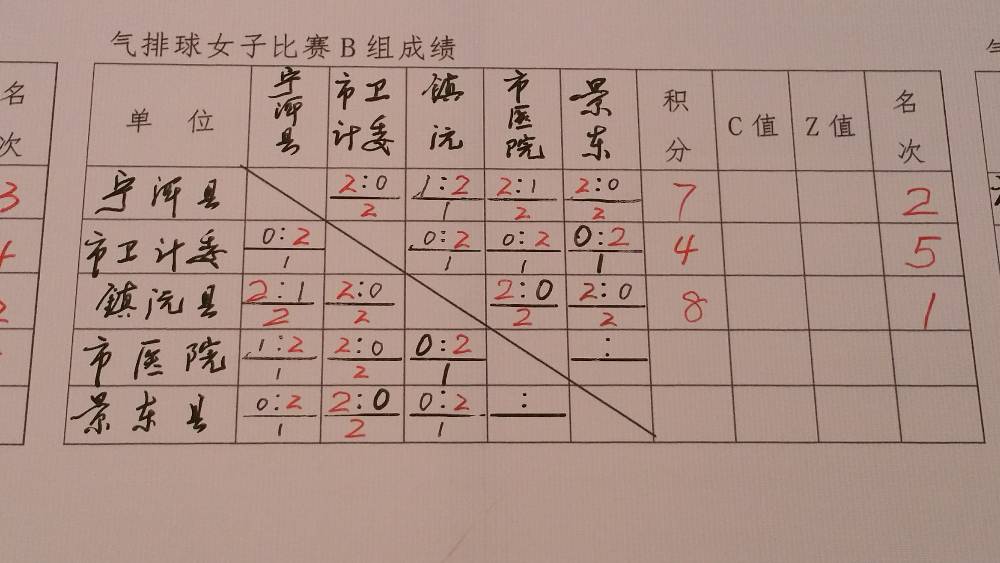 气排球女子比赛B组成绩
单位 宁洱县 市卫计委 镇沅 市医院 景东 积分 C值 Z值 名次
宁洱县 2:0 2 1:2 1 2:1 2 2:0 2 7 2
市卫计委 0:2 1 0:2 1 0:2 1 0:2 1 4 5
镇沅县 2:1 2 2:0 2 2:0 2 2:0 2 8 1
市医院 1:2 1 2:0 2 0:2 1 :
景东县 0:2 1 2:0 2 0:2 1 :
名次
3
4
2